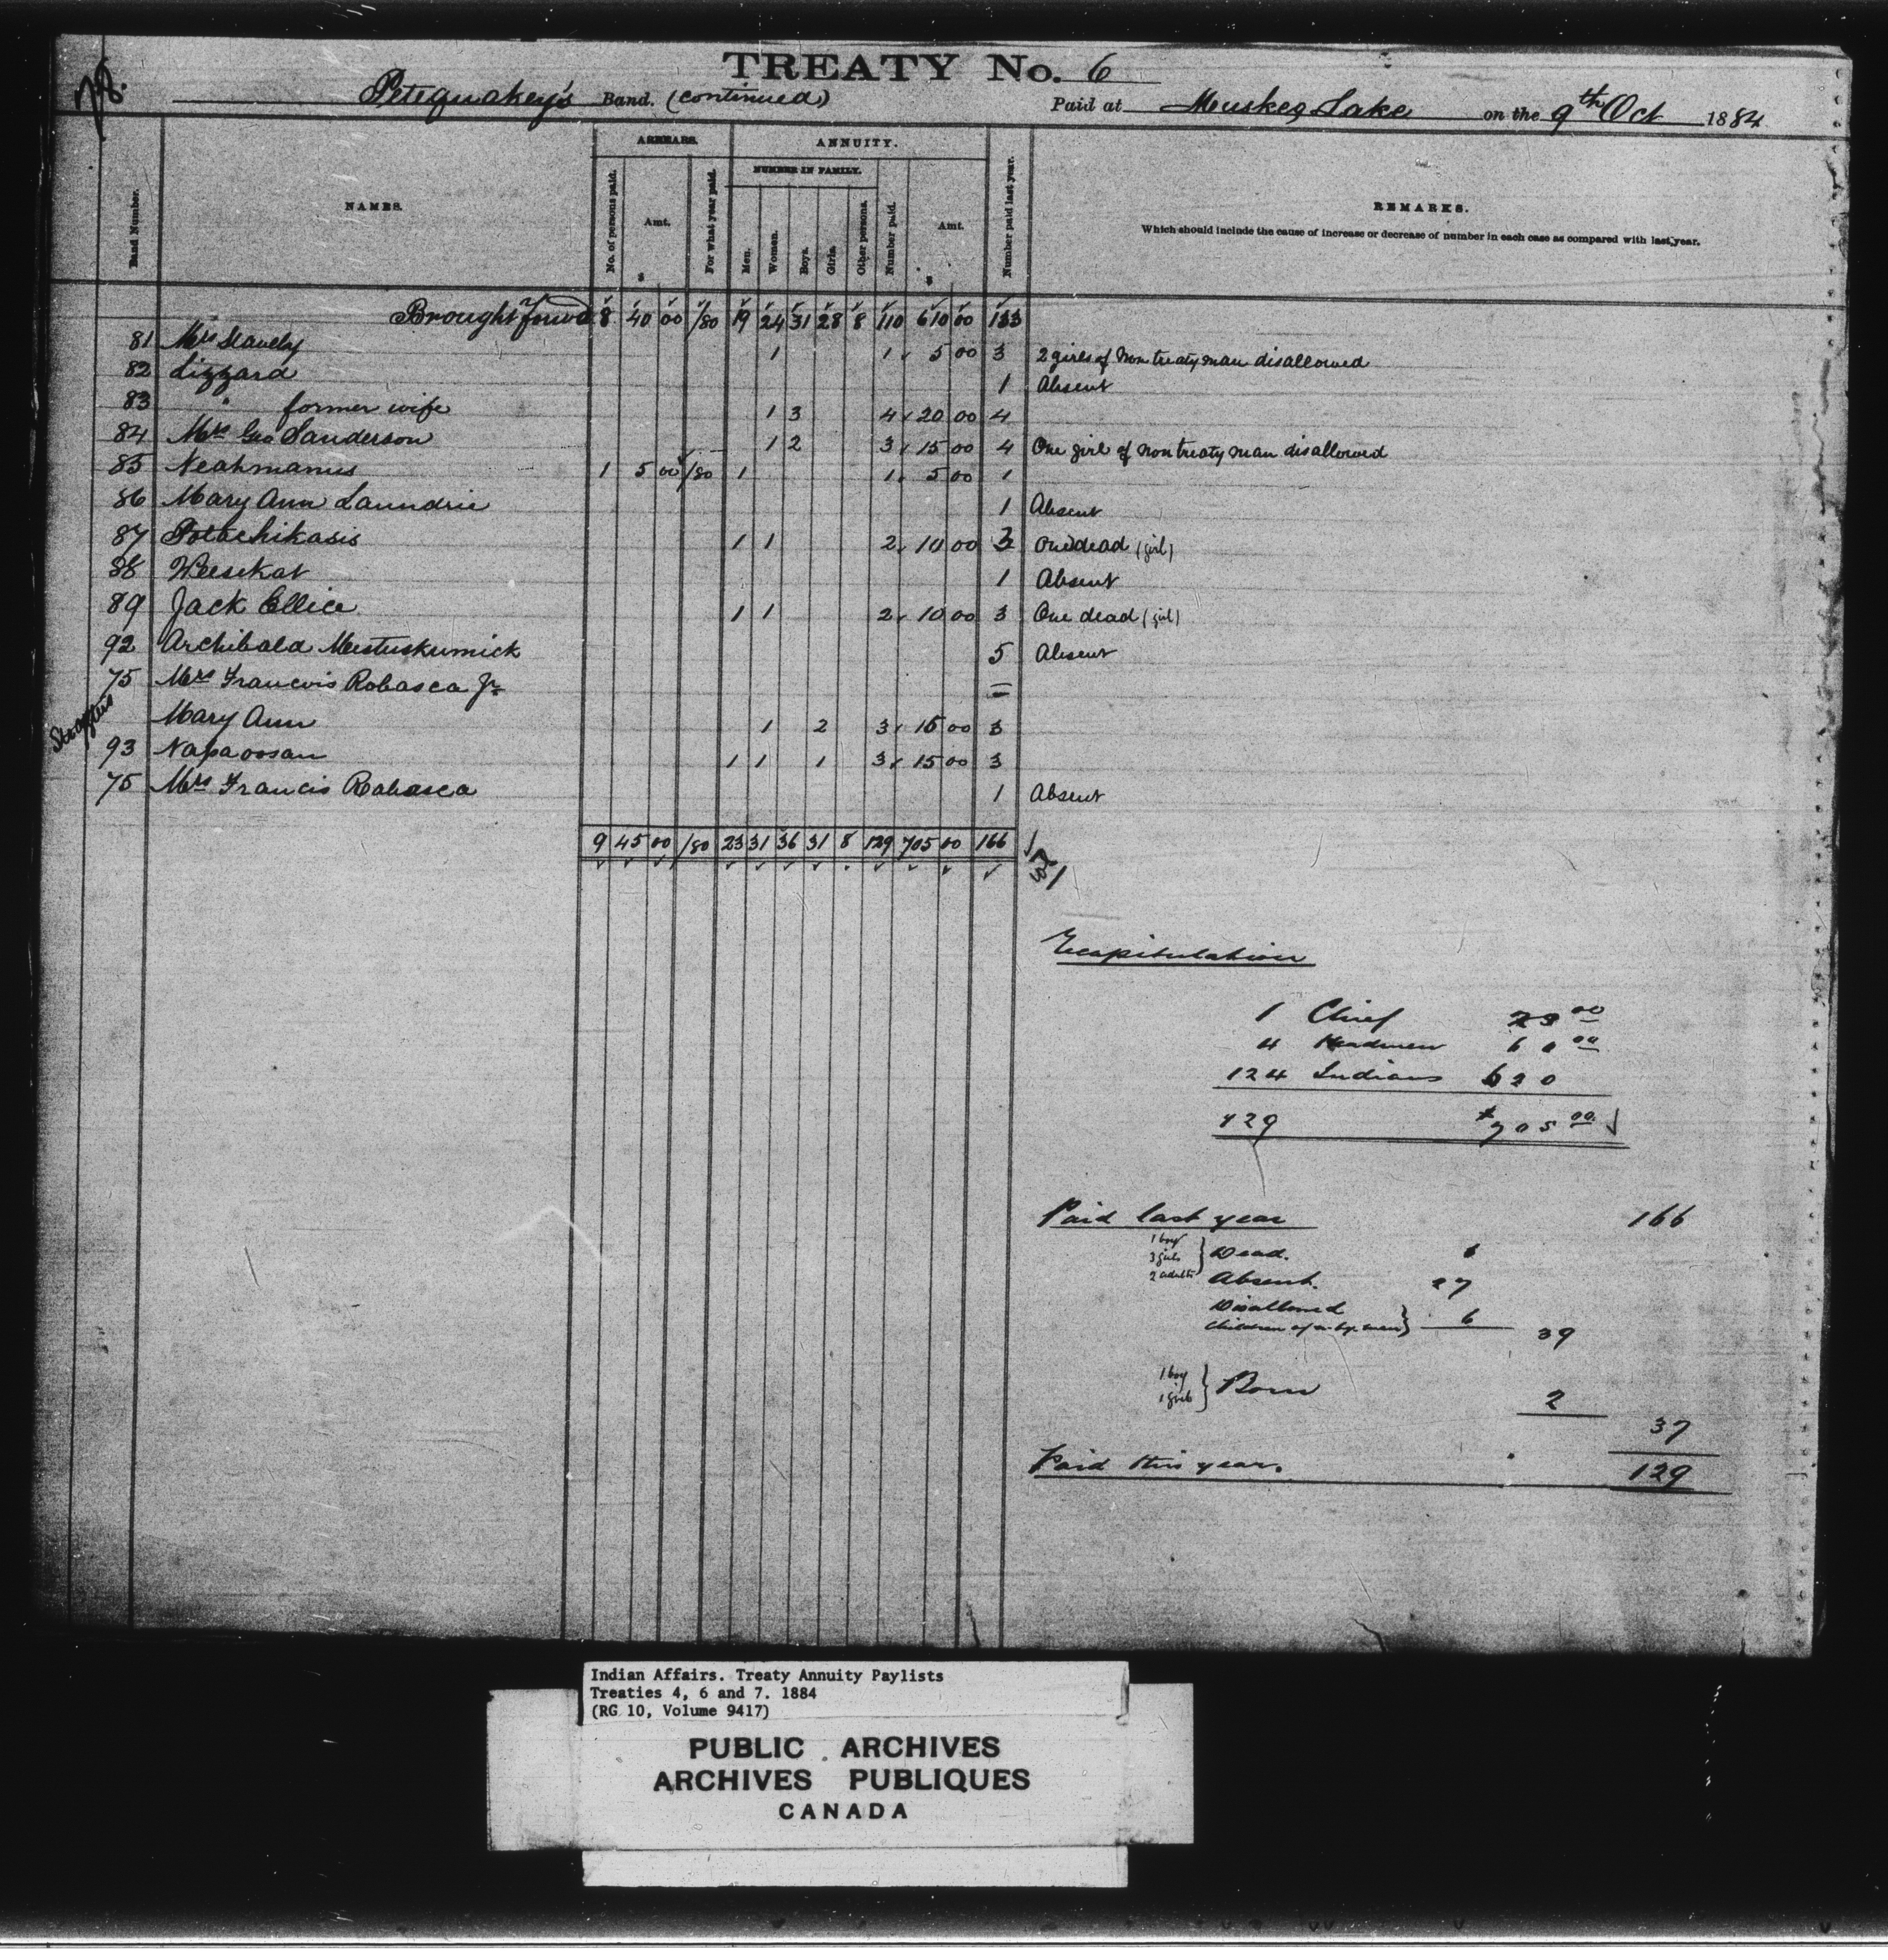 TREATY No. 6
78.
Petequakey's Band. (continued) Paid at Muskeg Lake on the 9th Oct 1884
ARREARS. ANNUITY.
NUMBER IN FAMILY.
Band Number. NAMES. No. of persons paid. Amt. $ For what year paid. Men. Women. Boys. Girls. Other persons. Number paid. Amt. $ Number paid last year. REMARKS.
Which should include the cause of increase or decrease of number in each case as compared with last year.
Brought forwd 8 40 00 /80 19 24 31 28 8 110 610 00 133
81 Mrs 1 1 5 00 3 2 girls of Non treaty man disallowed
82 Lizzard 1 Absent
83 " former wife 1 3 4 20 00 4
84 Mrs Geo Sanderson 1 2 3 15 00 4 One girl of non treaty man disallowed
85 Neahmanus 1 5 00 /80 1 1 5 00 1
86 Mary Ann Laundrie 1 Absent
87 Potachikasis 1 1 2 10 00 3 One dead (girl)
88 Weesekat 1 Absent
89 Jack Ellice 1 1 2 10 00 3 One dead (girl)
92 Archibald Mestuskumick 5 Absent
75 Mrs Francois Robasca Jr —
Straglers Mary Ann 1 2 3 15 00 3
93 Napaoosan 1 1 1 3 15 00 3
75 Mrs Francis Robasca 1 Absent
9 45 00 /80 23 31 36 31 8 129 705 00 166
Recapitulation
1 Chief 25 00
4 Headmen 60 00
124 Indians 620
129 $705 00
Paid last year 166
1 boy
3 girls } Dead. 6
2 adults
Absent. 27
Disallowed
Children of } 6 39
1 boy
1 girl } Born 2
37
Paid this year. 129
Indian Affairs. Treaty Annuity Paylists
Treaties 4, 6 and 7. 1884
(RG 10, Volume 9417)
PUBLIC ARCHIVES
ARCHIVES PUBLIQUES
CANADA